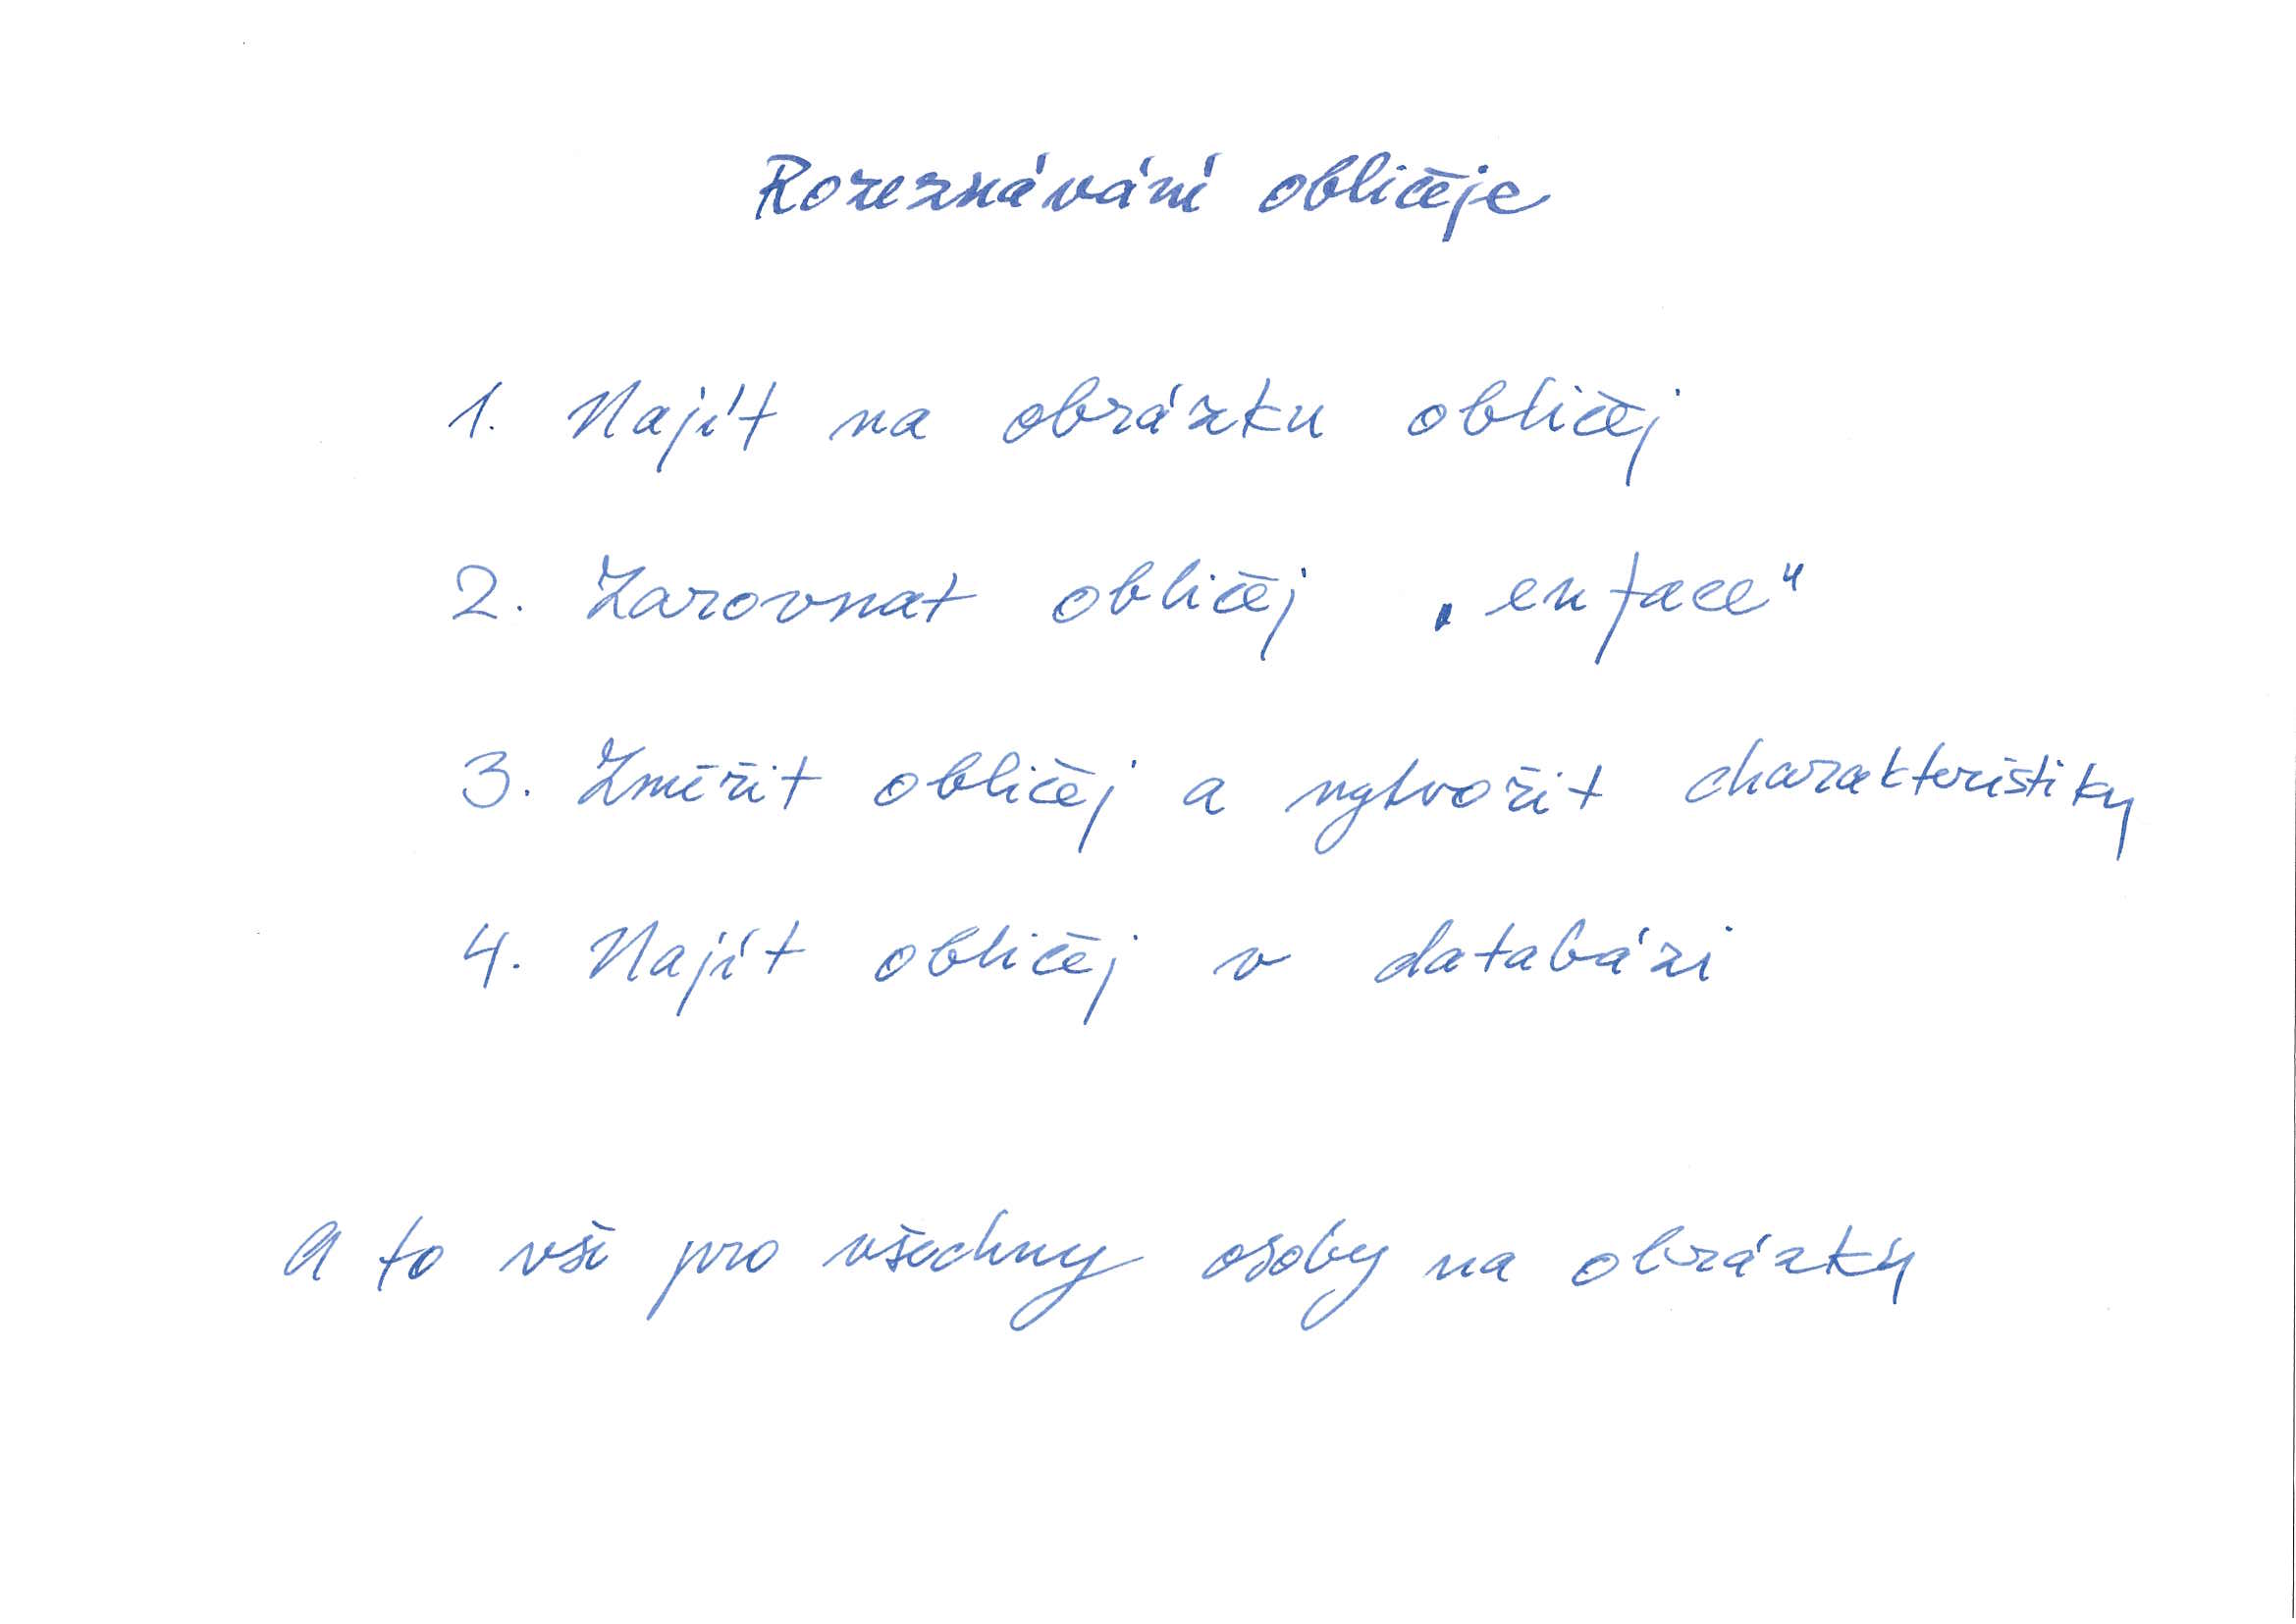 Rozeznávání obličeje
1. Najít na obrázku obličej
2. Zarovnat obličej „enface“
3. Změřit obličej a vytvořit charakteristiky
4. Najít obličej v databázi
A to vše pro všechny osoby na obrázky